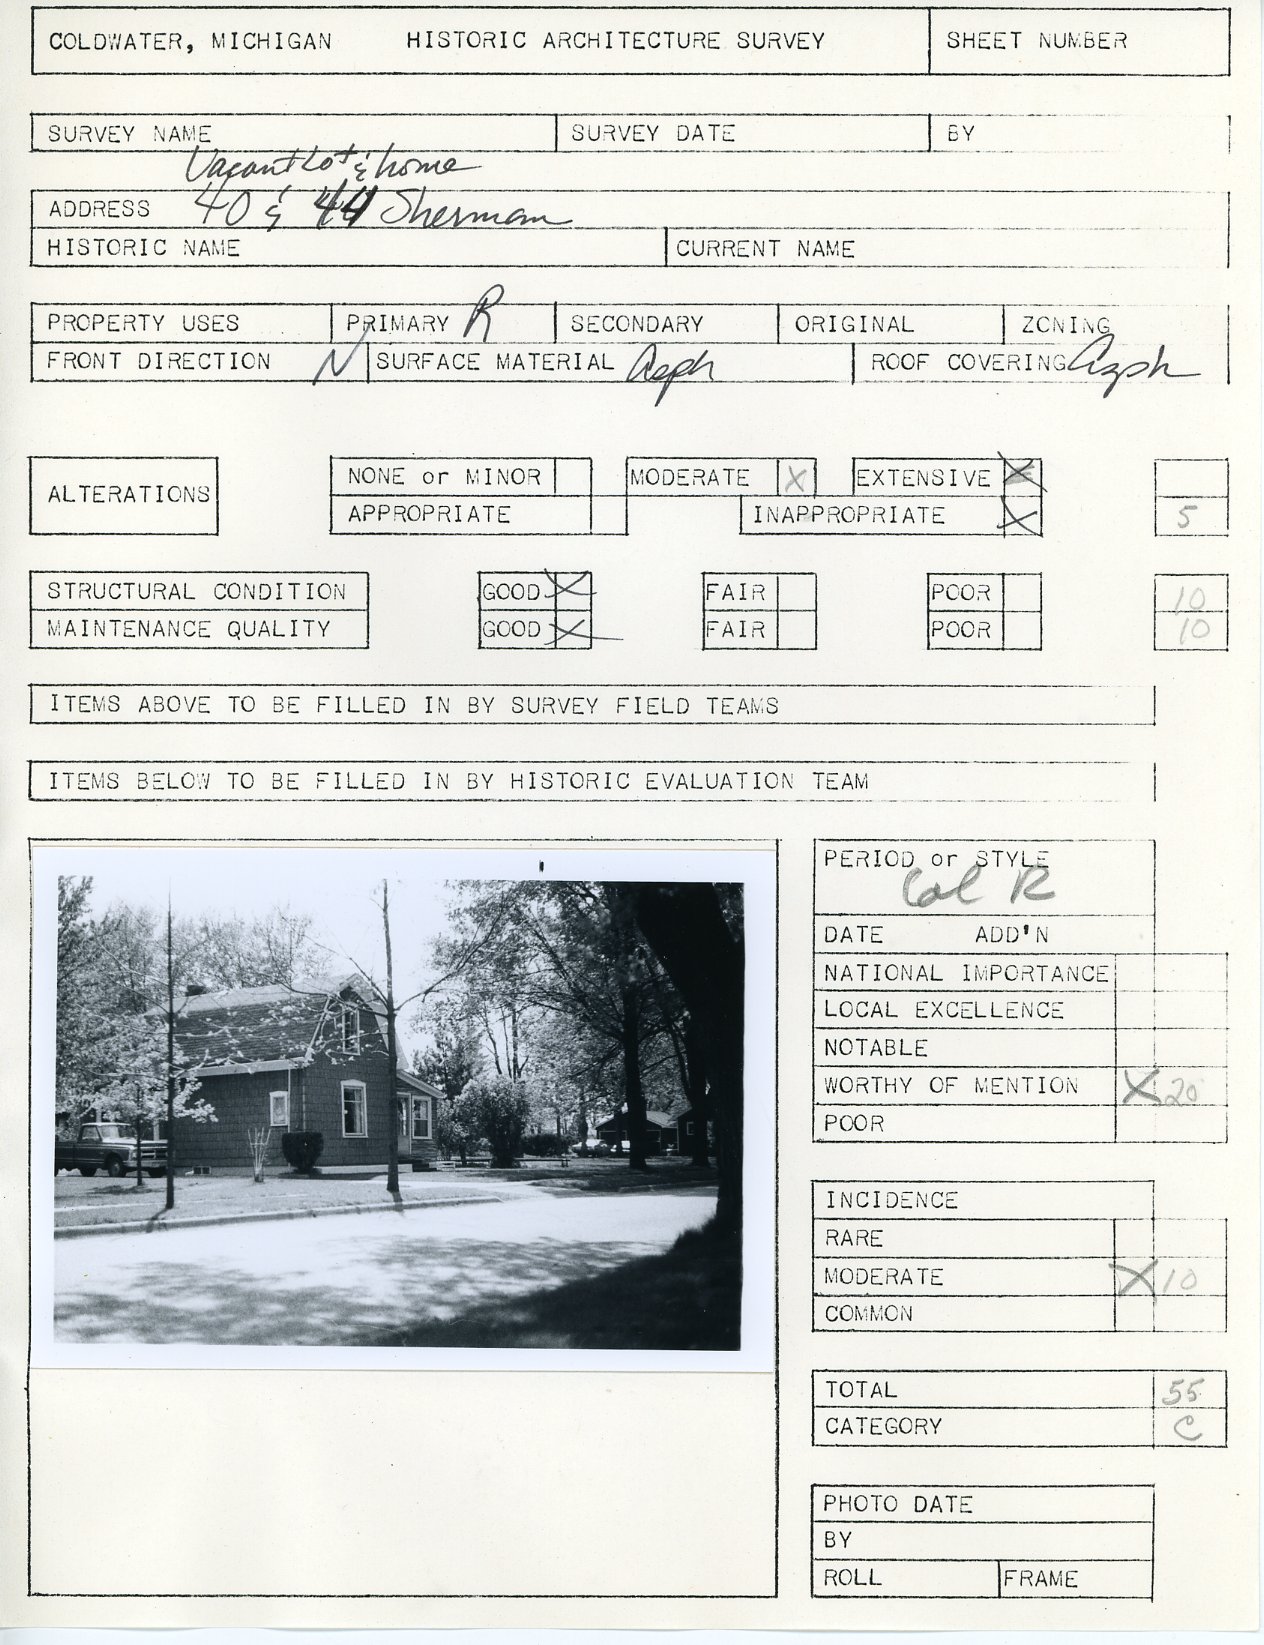 COLDWATER, MICHIGAN HISTORIC ARCHITECTURE SURVEY SHEET NUMBER
SURVEY NAME SURVEY DATE BY
Vacant Lot & home
ADDRESS 40 & 44 Sherman
HISTORIC NAME CURRENT NAME
PROPERTY USES PRIMARY R SECONDARY ORIGINAL ZONING
FRONT DIRECTION N SURFACE MATERIAL Asph ROOF COVERING Asph
ALTERATIONS
NONE or MINOR MODERATE X EXTENSIVE X
APPROPRIATE INAPPROPRIATE X 5
STRUCTURAL CONDITION GOOD X FAIR POOR 10
MAINTENANCE QUALITY GOOD X FAIR POOR 10
ITEMS ABOVE TO BE FILLED IN BY SURVEY FIELD TEAMS
ITEMS BELOW TO BE FILLED IN BY HISTORIC EVALUATION TEAM
PERIOD or STYLE
Col R
DATE ADD'N
NATIONAL IMPORTANCE
LOCAL EXCELLENCE
NOTABLE
WORTHY OF MENTION X 20
POOR
INCIDENCE
RARE
MODERATE X 10
COMMON
TOTAL 55
CATEGORY C
PHOTO DATE
BY
ROLL FRAME